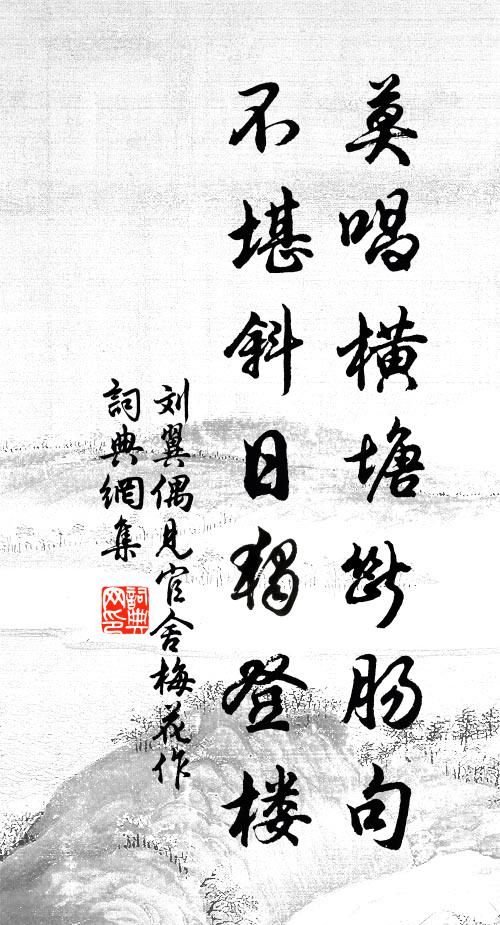 莫唱橫塘斷肠句
不堪斜日獨登楼
刘翼偶見官舍梅花作
詞典網集
詞典网印